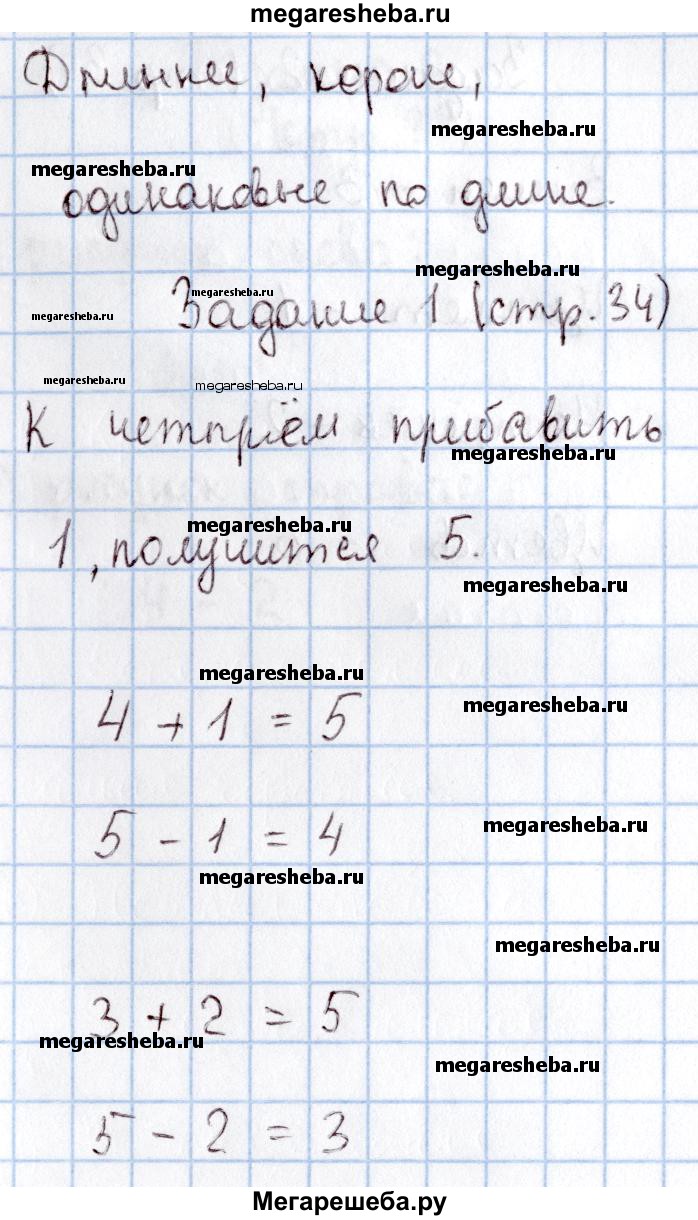 megaresheba.ru
Длиннее, короче,
megaresheba.ru
megaresheba.ru
одинаковые по длине.
megaresheba.ru
megaresheba.ru
Задание 1 (стр. 34)
megaresheba.ru
megaresheba.ru
megaresheba.ru
К четырём прибавить
megaresheba.ru
megaresheba.ru
1, получится 5.
megaresheba.ru
megaresheba.ru
megaresheba.ru
4 + 1 = 5
megaresheba.ru
5 - 1 = 4
megaresheba.ru
megaresheba.ru
3 + 2 = 5
megaresheba.ru
megaresheba.ru
5 - 2 = 3
Мегарешеба.ру